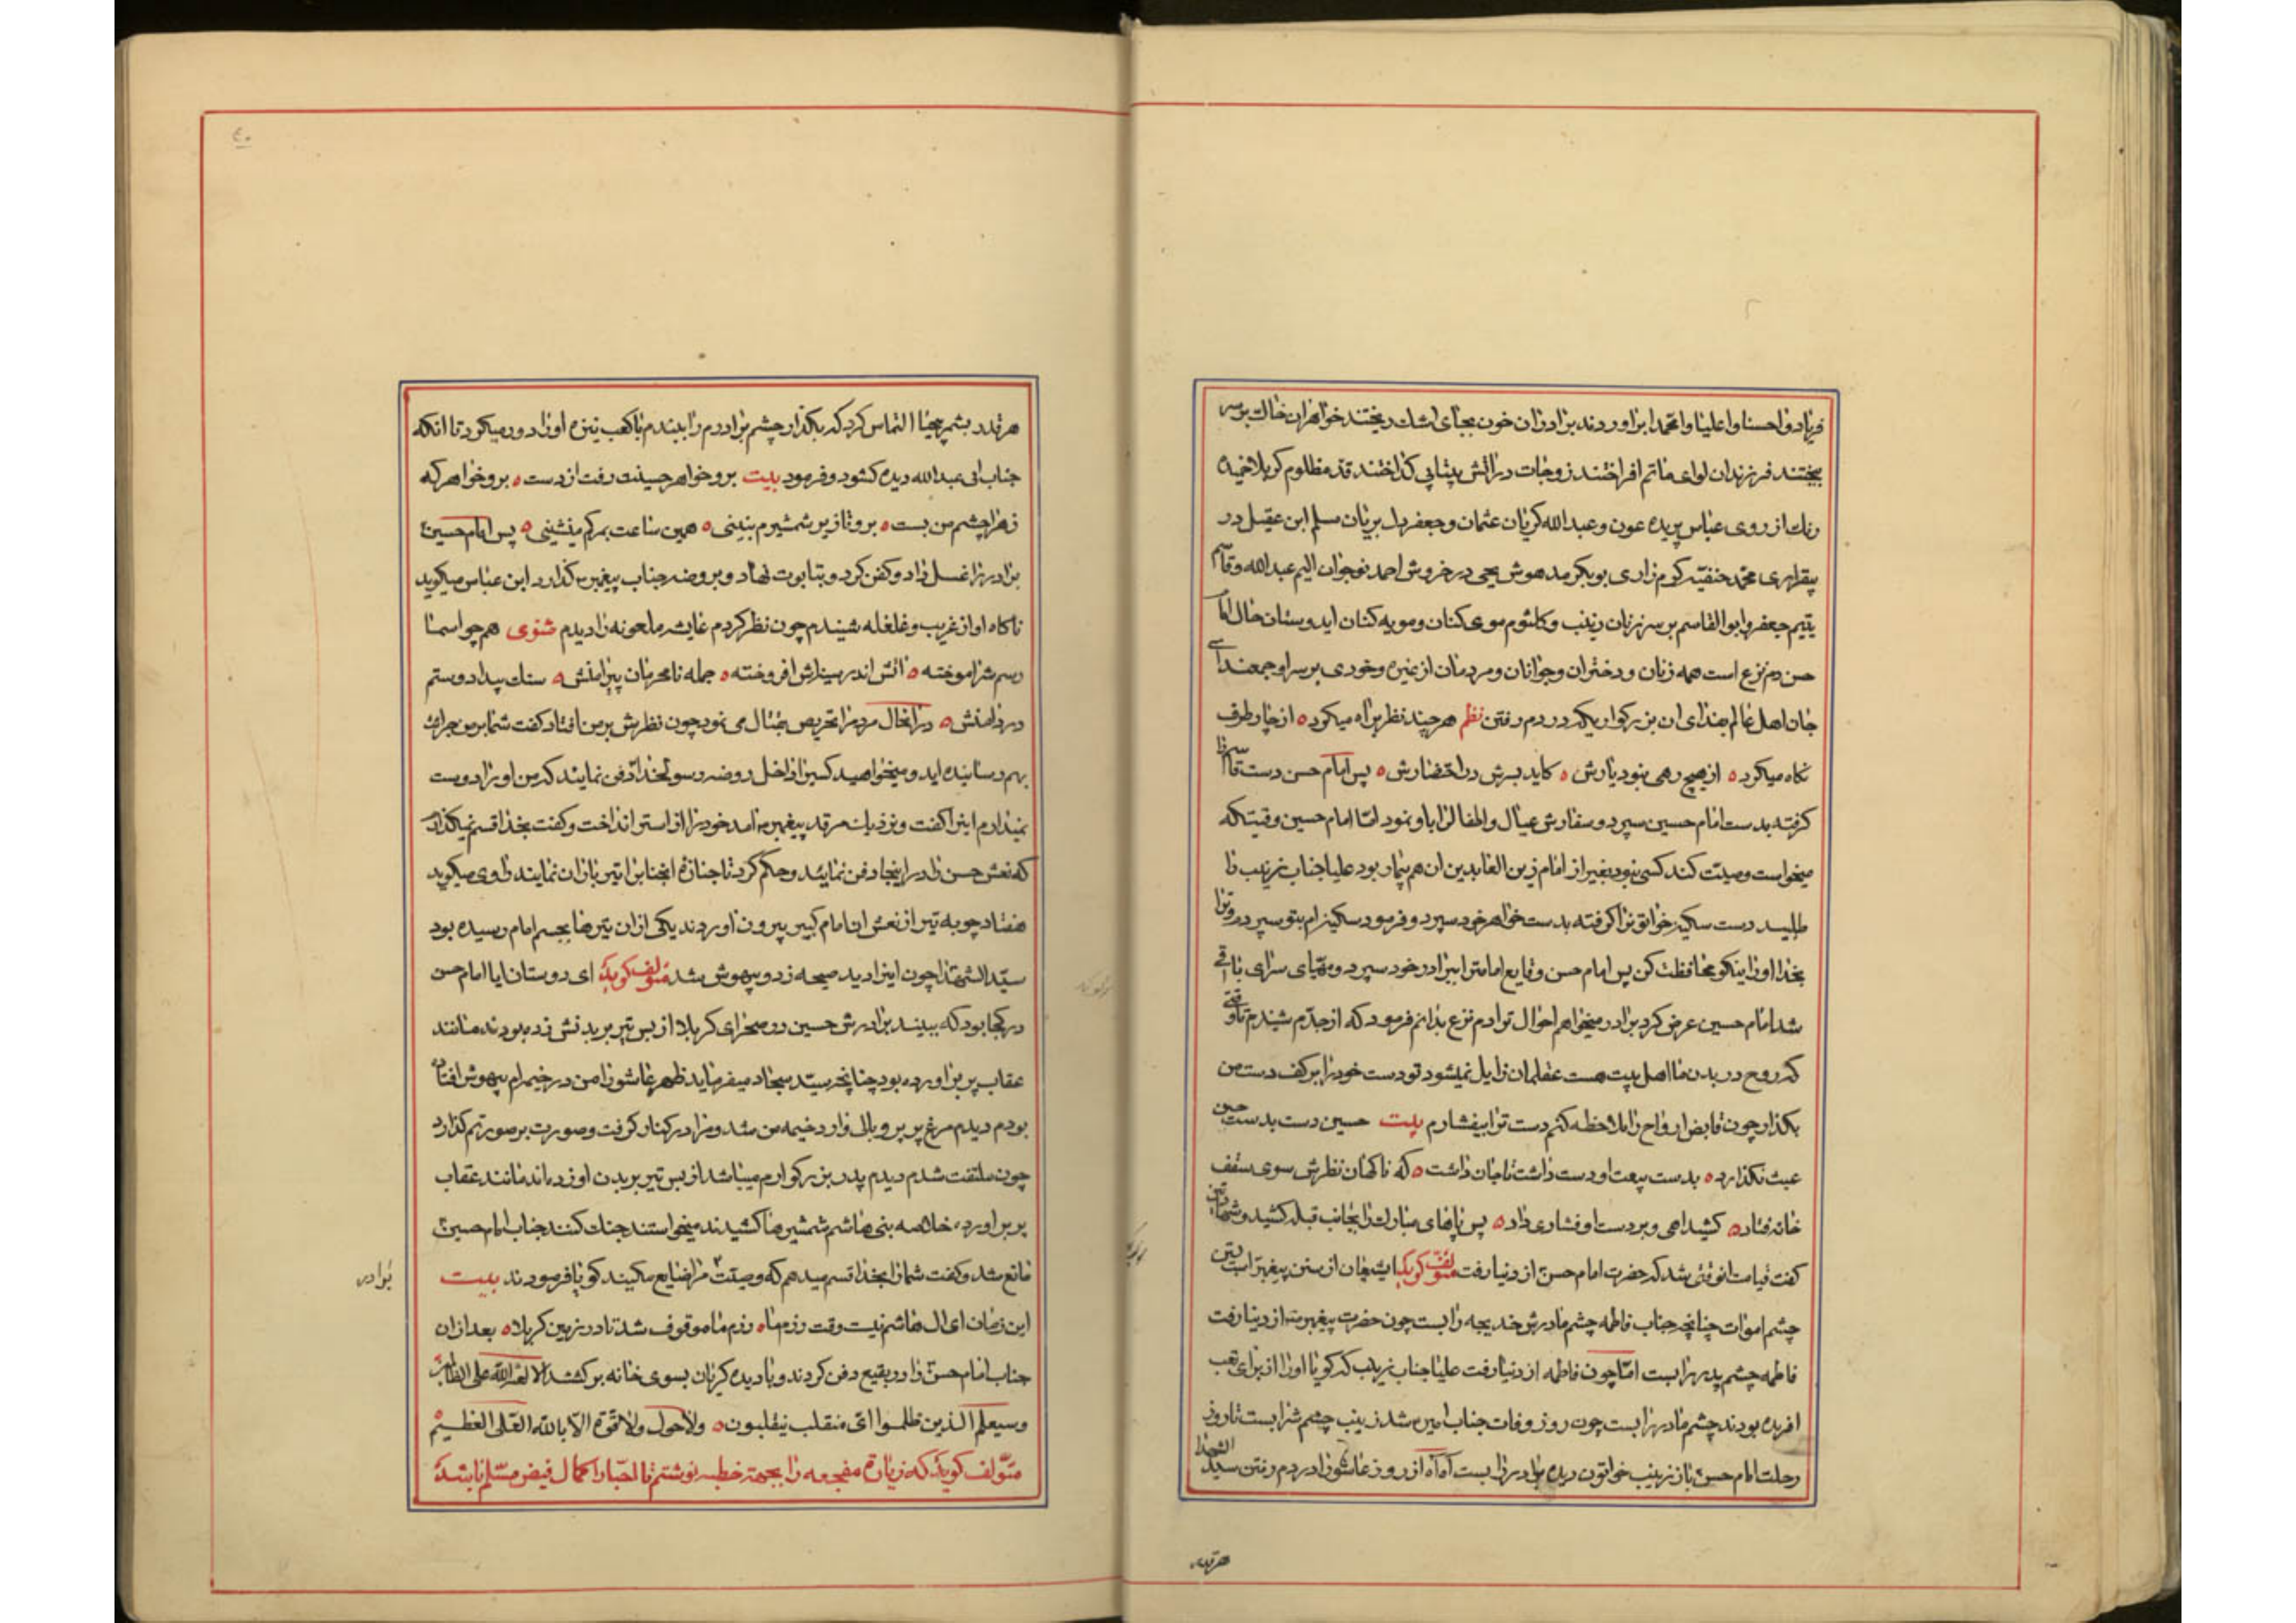 فریاد وا حسنا وا علیا وا محمدا براوردند برادران خون بجای اشک ریختند خواهران خاک بر سر
بیختند فرزندان لوای ماتم افراختند زوجات در اتش بیتابی کداختند قد مظلوم کربلا خمیده
رنک از روی عباس پریده عون و عبدالله کریان عثمان و جعفر دل بریان مسلم ابن عقیل در
بیقراری محمد حنفیه کرم زاری بوبکر مدهوش یحیی در خروش احمد نوجوان الیم عبدالله و قاسم
یتیم جعفر و ابوالقاسم بر سر زنان زینب و کلثوم موی کنان و مویه کنان ای دوستان حال امام
حسن دم نزع است همه زنان و دختران و جوانان و مردمان از غیره و خوردی بر سر او جمعند ای
جان اهل عالم بفدای ان بزرکوار یکه در دم رفتن نظم هر چند نظر براه میکرد ه از چار طرف
نکاه میکرد ه از هیچ رهی نبود یارش ه کاید بسرش در احتضارش ه پس امام حسن دست قاسم را
کرفته بدست امام حسین سپرد و سفارش عیال و اطفال را باو نمود امّا امام حسین وقتیکه
میخواست وصیّت کند کسی نبود بغیر از امام زین العابدین ان هم بیمار بود علیا جناب زینب را
طلبید دست سکینه خواتون را کرفته بدست خواهر خود سپرد و فرمود سکینه ام بتو سپردم و ترا
بخدا او را نیکو محافظت کن پس امام حسن ودایع امامت را ببرادر خود سپرد و مهیّای سرای باقی
شد امام حسین عرض کرد برادر میخواهم احوال ترا دم نزع بدانم فرمود که از جدّم شنیدم تا وقتی
که روح در بدن ما اهل بیت هست عقلمان زایل نمیشود تو دست خود را بر کف دست من
بکذار چون قابض ارواح را ملاحظه کنم دست ترا بیفشارم بیت حسین دست بدست حسن
عبث نکذارد ه بدست بیعت او دست داشت تا جان داشت ه که ناکهان نظرش سوی سقف
خانه فتاد ه کشید اهی و بر دست او فشاری داد ه پس پاهای مبارک را بجانب قبله کشید و شهادتین
کفت قیامت انوقتی شد که حضرت امام حسن از دنیا رفت مؤلف کوید ایشیعیان از سنن پیغمبر است بستن
چشم اموات چنانچه جناب فاطمه چشم مادرش خدیجه را بست چون حضرت پیغمبر ص از دنیا رفت
فاطمه چشم پدر را بست امّا چون فاطمه از دنیا رفت علیا جناب زینب که کویا او را از برای تعب
افریده بودند چشم مادر را بست چون روز وفات جناب امیر شد زینب چشمش را بست تا روز
رحلت امام حسن باز زینب خواتون دیده برادر را بست اما اه از روز عاشورا در دم رفتن سید الشهدا
هر قدر
هر قدر بشمر بیحیا التماس کرد که بکذار چشم برادرم را ببندم با کعب نیزه او را دور میکرد تا انکه
جناب ابی عبدالله دیده کشود و فرمود بیت برو خواهر حسینت رفت از دست ه برو خواهر که
زهرا چشم من بست ه برو تا زیر شمشیرم نبینی ه همین ساعت بمرکم مینشینی ه پس امام حسین
برادر را غسل داد و کفن کرد و بتابوت نهاد و بروضه جناب پیغمبر ص کذارد ابن عباس میکوید
ناکاه اواز غریب و غلغله شنیدم چون نظر کردم عایشه ملعونه را دیدم مثنوی همچو اسما
رسم شر اموخته ه اتش اندر سینه‌اش افروخته ه جمله نامحرمان پیرامنش ه سنک بیداد و ستم
در دامنش ه در انحال مردم را تحریص بقتال می نمود چون نظرش بر من افتاد کفت شما بر من جرات
بهم رسانیده اید و میخواهید کسی را داخل روضه رسولخدا دفن نمایند که من او را دوست
نمیدارم اینرا کفت و نزدیک مرقد پیغمبر ص امد خود را از استر انداخت و کفت بخدا قسم نمیکذارم
که نعش حسن را در اینجا دفن نمایند و حکم کرد تا جنازهٔ انجناب را تیر باران نمایند راوی میکوید
هفتاد چوبه تیر از نعش ان امام کبیر بیرون اوردند یکی از ان تیرها بجسم امام رسیده بود
سیّد الشهدا چون اینرا دید صیحه زد و بیهوش شد مؤلف کوید ای دوستان ایا امام حسن
در کجا بود که ببیند برادرش حسین در صحرای کربلا از بس تیر بر بدنش زده بودند مانند
عقاب پر براورده بود چنانچه سیّد سجاد میفرماید ظهر عاشورا من در خیمه ام بیهوش افتاده
بودم دیدم مرغ پر پر و بالی وارد خیمه من شد و مرا در کنار کرفت و صورت بر صورتم کذارد
چون ملتفت شدم دیدم پدر بزرکوارم میباشد از بس تیر بر بدن او زده اند مانند عقاب
پر براورده خلاصه بنی هاشم شمشیرها کشیدند میخواستند جنک کنند جناب امام حسین
مانع شد و کفت شما را بخدا قسم میدهم که وصیّت مرا ضایع مکنید کویا فرمودند بیت
برادر
این زمان ای ال هاشم نیست وقت رزم ما ه رزم ما موقوف شد تا در زمین کربلا ه بعد از ان
جناب امام حسن را در بقیع دفن کردند و با دیده کریان بسوی خانه برکشتند الا لعنة الله علی الظالمین
وسیعلم الذین ظلموا ای منقلب ینقلبون ه ولا حول ولا قوة الا بالله العلی العظیم
مؤلف کوید که زیارة مفجعه را بجهة خطبه نوشتم تا احبّا را کمال فیض میسّر باشد